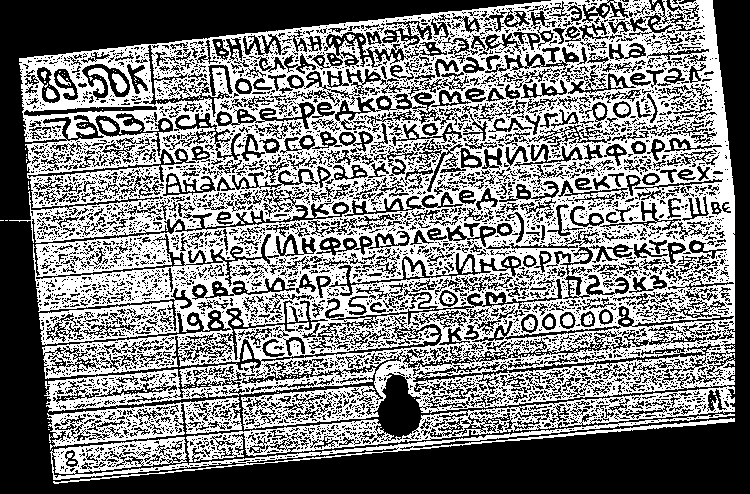 ВНИИ информации и техн. экон. ис-
следований в электротехнике
89-50К
Постоянные магниты на
7303 основе редкоземельных метал-
лов: (Договор, код услуги 001):
Аналит. справка / ВНИИ информ.
и техн.-экон. исслед. в электротех-
нике (Информэлектро); [Сост. Н.Е. Шве
цова и др.]. - М.: Информэлектро,
1988. - [1], 25 с.; 20 см. - 172 экз.
ДСП. Экз. N 000008
М.
8